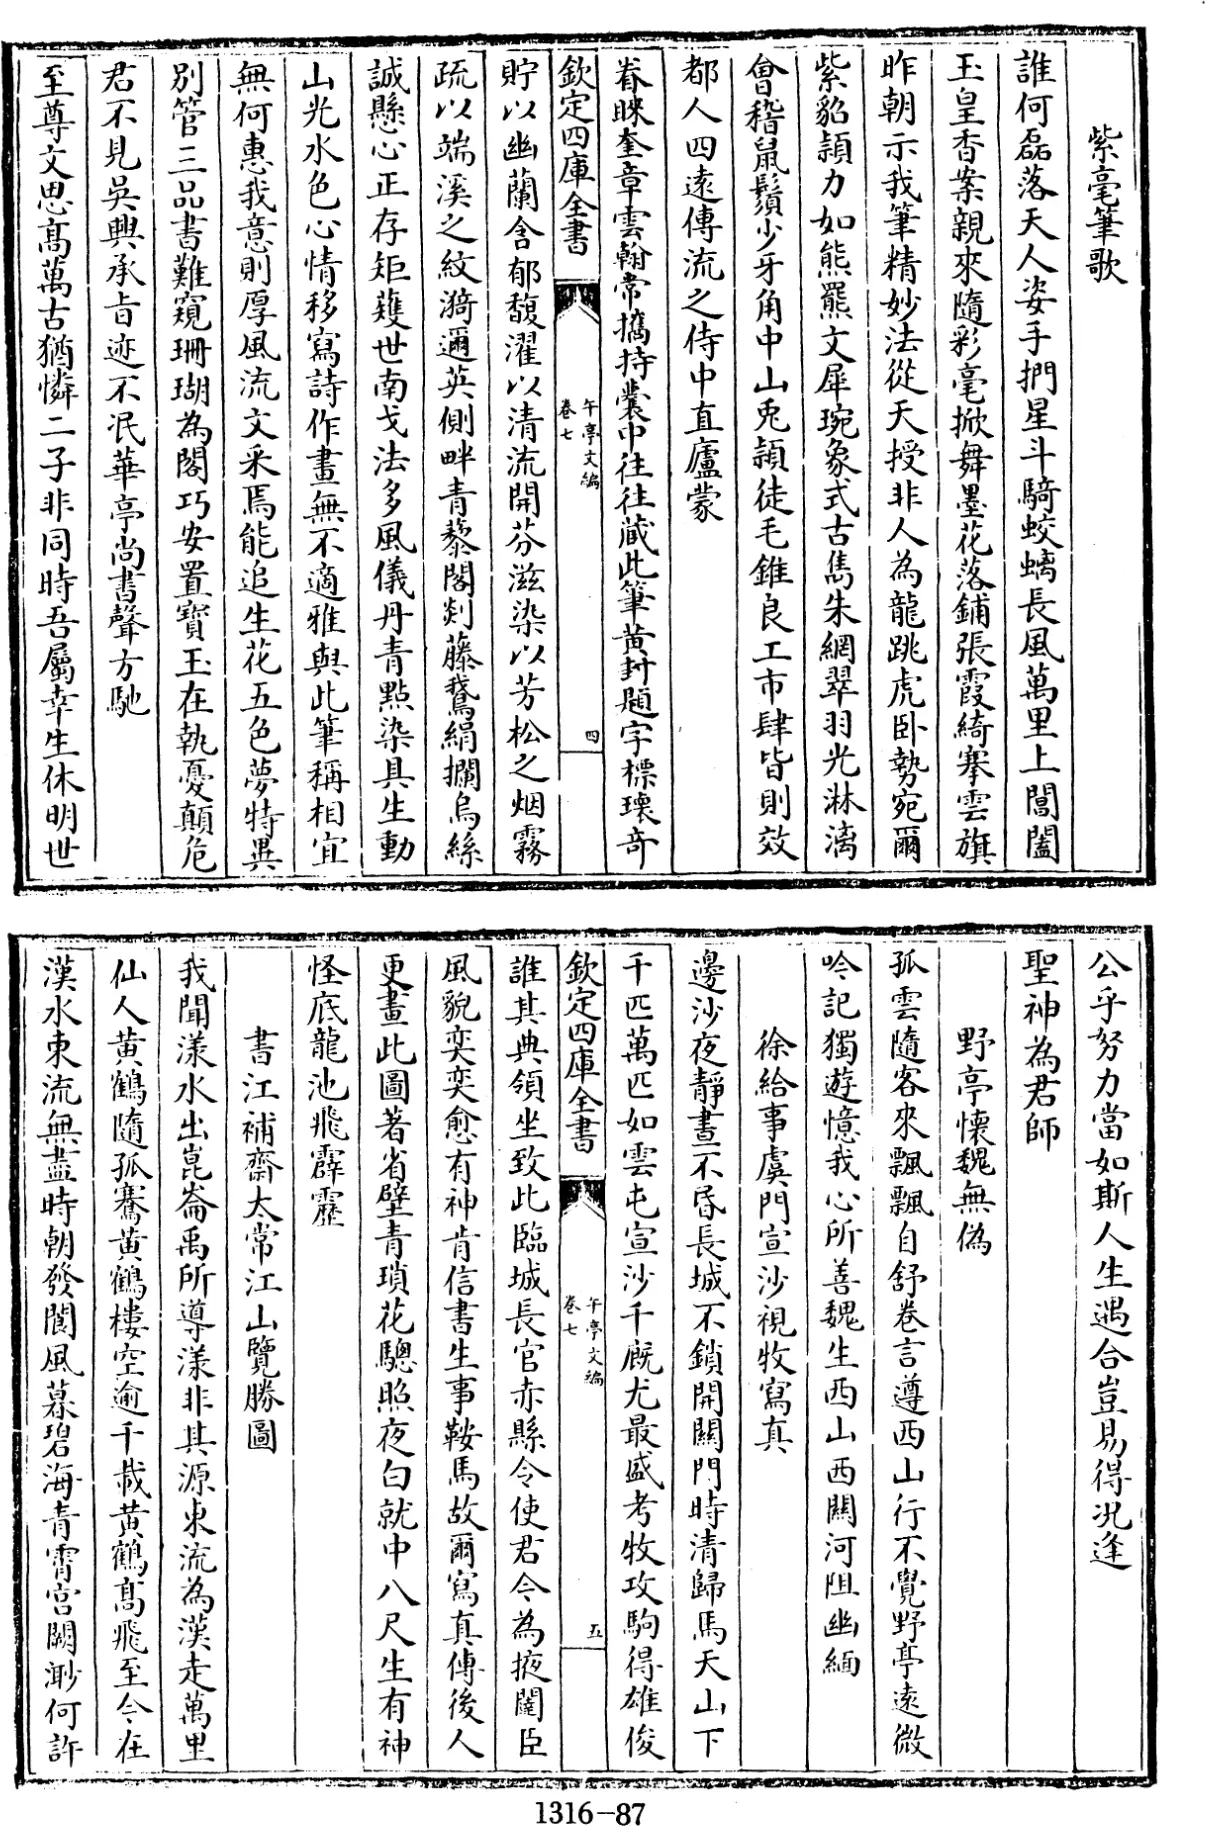 紫毫筆歌
誰何磊落天人姿手捫星斗騎蛟螭長風萬里上閶闔
玉皇香案親來隨彩毫掀舞墨花落鋪張霞綺搴雲旗
昨朝示我筆精妙法從天授非人為龍跳虎卧勢宛爾
紫貂頴力如熊羆文犀琬象式古雋朱網翠羽光淋漓
會稽鼠鬚少牙角中山兎頴徒毛錐良工市肆皆則效
都人四遠傳流之侍中直廬蒙
眷睞奎章雲翰常攜持囊中往往蔵此筆黄封題字標瓌奇
欽定四庫全書
午亭文編
卷七
四
貯以幽蘭含郁馥濯以清流開芬滋染以芳松之烟霧
疏以端溪之紋漪邇英側畔青藜閣剡藤鵞絹攔烏絲
誠懸心正存矩蒦世南戈法多風儀丹青點染具生動
山光水色心情移寫詩作畫無不適雅與此筆稱相宜
無何惠我意則厚風流文采焉能追生花五色夢特異
別管三品書難窺珊瑚為閣巧安置寳玉在執憂顛危
君不見吳興承旨迹不泯華亭尚書聲方馳
至尊文思髙萬古猶憐二子非同時吾屬幸生休明世
公乎努力當如斯人生遇合豈易得况逢
聖神為君師
野亭懷魏無偽
孤雲隨客來飄飄自舒卷言遵西山行不覺野亭遠微
吟記獨遊憶我心所善魏生西山西關河阻幽緬
徐給事虞門宣沙視牧寫真
邊沙夜靜晝不昏長城不鎖開關門時清歸馬天山下
千匹萬匹如雲屯宣沙千廐尤最盛考牧攻駒得雄俊
欽定四庫全書
午亭文編
卷七
五
誰其典領坐致此臨城長官赤縣令使君今為掖闥臣
風貌奕奕愈有神肯信書生事鞍馬故爾寫真傳後人
更畫此圖著省壁青瑣花驄照夜白就中八尺生有神
怪底龍池飛霹靂
書江補齋太常江山覽勝圖
我聞漾水出崑崙禹所導漾非其源東流為漢走萬里
仙人黄鶴隨孤騫黄鶴樓空逾千載黄鶴髙飛至今在
漢水東流無盡時朝發閬風暮碧海青霄宫闕渺何許
1316-87